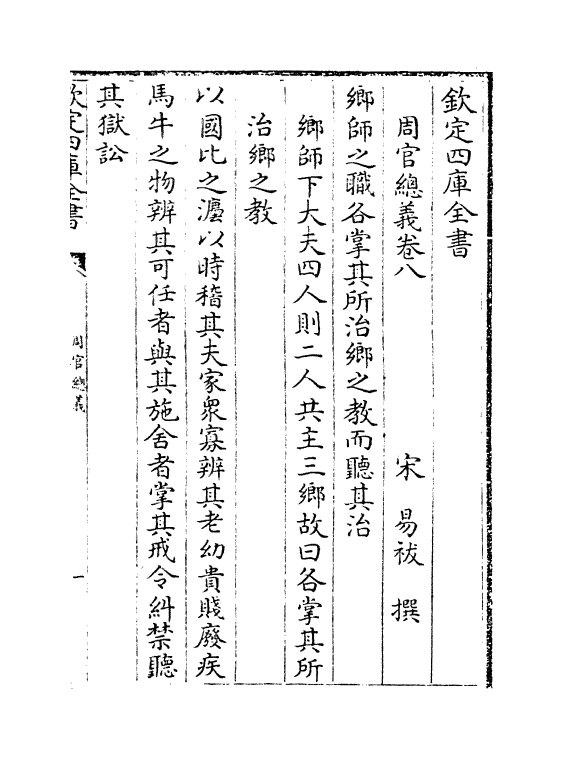 欽定四庫全書
周官總義卷八　　宋　易祓　撰
鄉師之職各掌其所治鄉之教而聽其治
鄉師下大夫四人則二人共主三鄉故曰各掌其所
治鄉之教
以國比之灋以時稽其夫家衆寡辨其老幼貴賤廢疾
馬牛之物辨其可任者與其施舍者掌其戒令糾禁聽
其獄訟
欽定四庫全書
周官總義
一